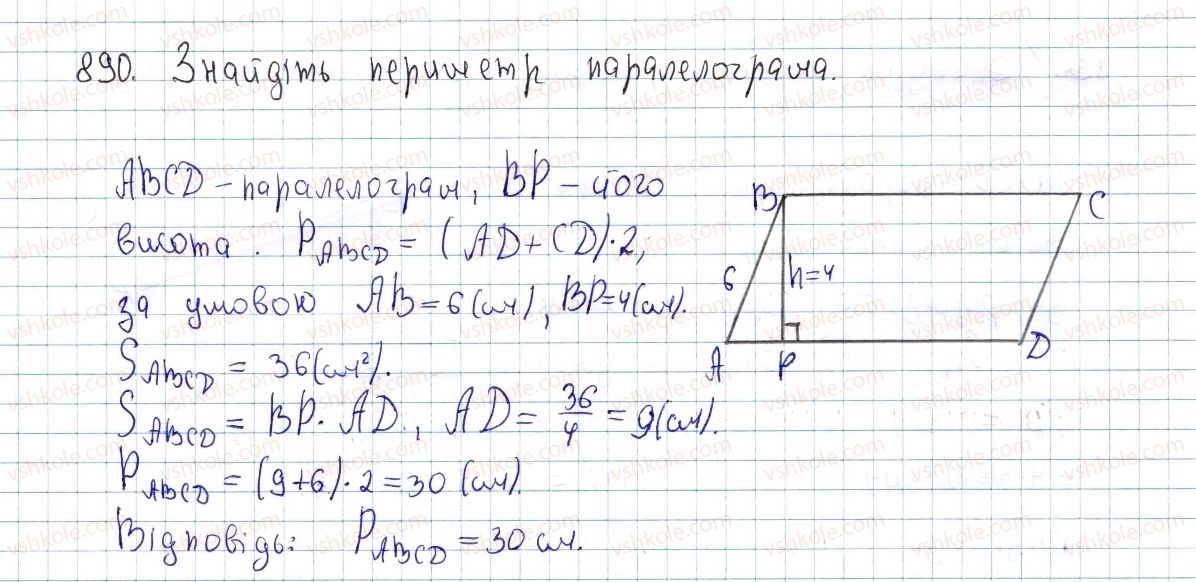 890. Знайдіть периметр паралелограма.
ABCD - паралелограм, BP - його
висота. P_ABCD = (AD + CD)·2,
за умовою AB = 6 (см), BP = 4 (см).
S_ABCD = 36 (см²).
S_ABCD = BP · AD, AD = 36/4 = 9 (см).
P_ABCD = (9+6)·2 = 30 (см).
Відповідь: P_ABCD = 30 см.
B C
6 h=4
A P D
vshkole.com